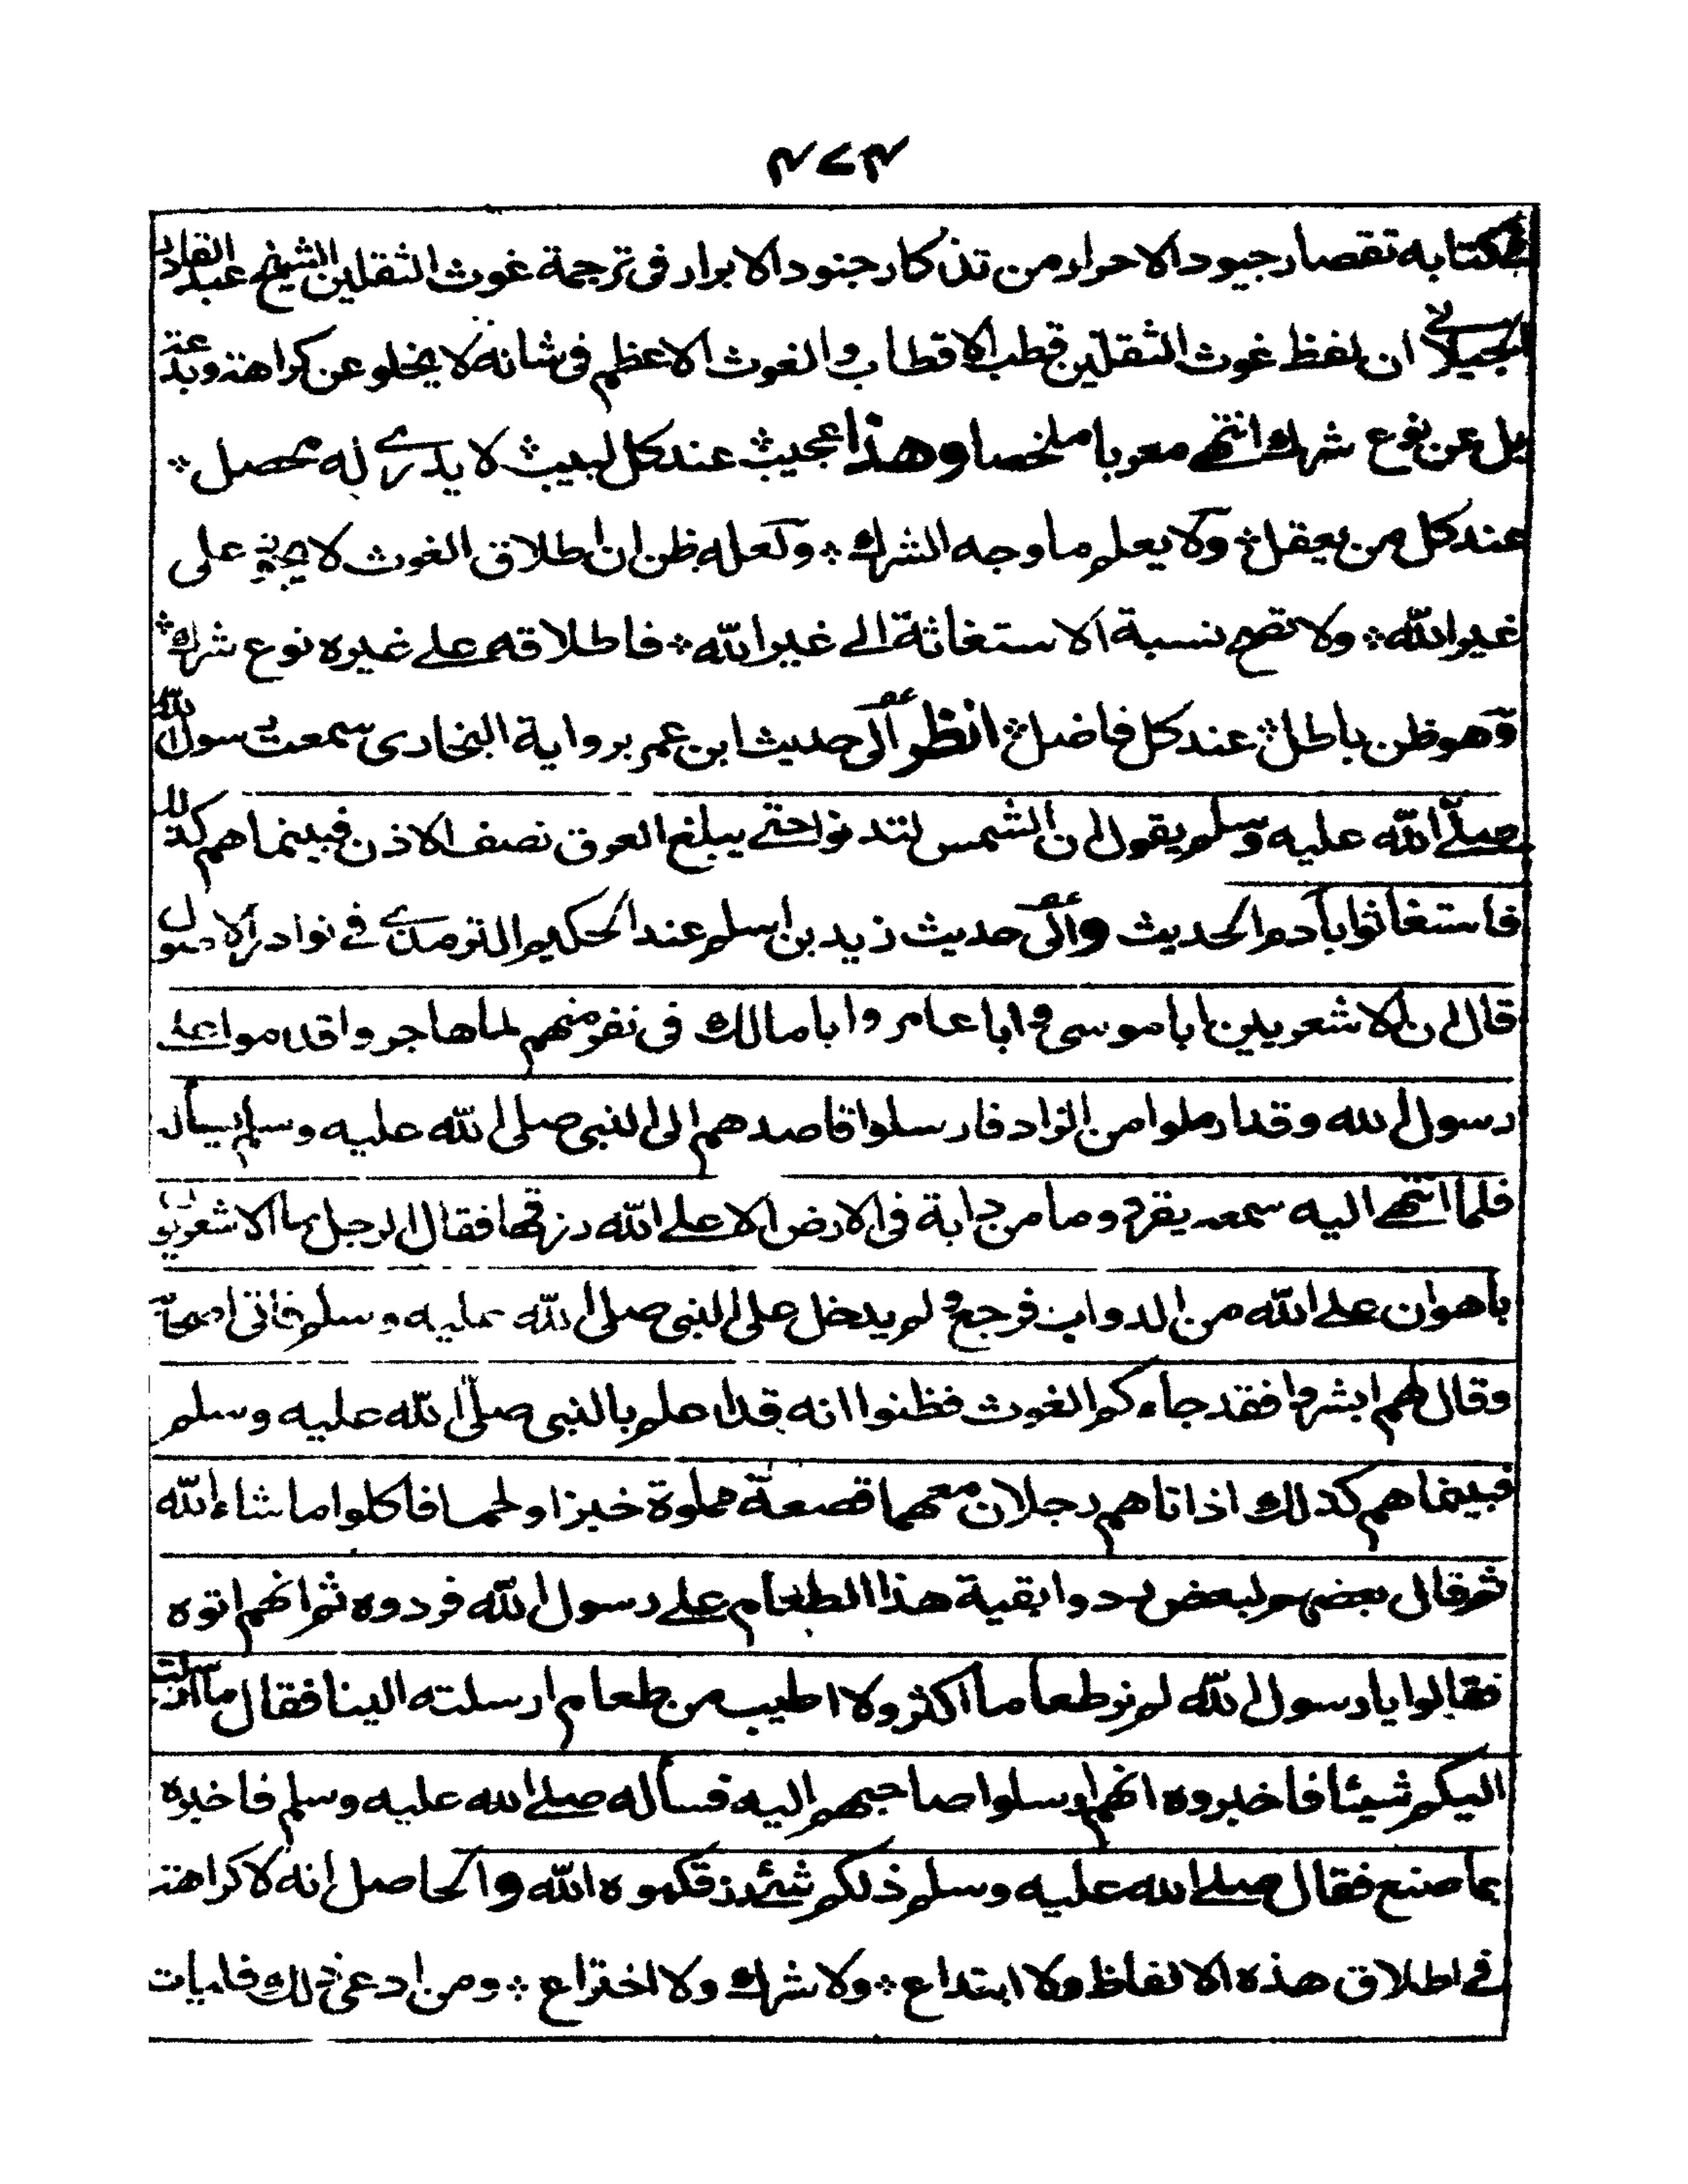 ٤٧٤
فى كتابه تقصار جيود الاحرار من تذكار جنود الابرار فى ترجمة غوث الثقلين الشيخ عبد القادر
الجيلانى ان لفظ غوث الثقلين قطب الاقطاب والغوث الاعظم فى شانه لا يخلو عن كراهة وبدعة
بل عن نوع شرك انتهى معربا ملخصا وهذا عجيب عند كل لبيب لا يدرى له محصل
عند كل من يعقل ولا يعلم ما وجه الشرك ولعله ظن ان اطلاق الغوث لا يجوز على
غير الله ولا تصح نسبة الاستغاثة الى غير الله فاطلاقه على غيره نوع شرك
وهو ظن باطل عند كل فاضل انظر الى حديث ابن عمر برواية البخارى سمعت رسول الله
صلى الله عليه وسلم يقول ان الشمس لتدنوا حتى يبلغ العرق نصف الاذن فبينما هم كذلك
فاستغاثوا بآدم الحديث والى حديث زيد بن اسلم عند الحكيم الترمذى فى نوادر الاصول
قال ان الاشعريين ابا موسى وابا عامر وابا مالك فى نفر منهم لما هاجروا قدموا على
رسول الله وقد ارملوا من الزاد فارسلوا قاصدهم الى النبى صلى الله عليه وسلم يسأله
فلما انتهى اليه سمعه يقرء وما من دابة فى الارض الا على الله رزقها فقال الرجل ما الاشعريون
بأهون على الله من الدواب فرجع ولم يدخل على النبى صلى الله عليه وسلم فاتى اصحابه
وقال لهم ابشروا فقد جاءكم الغوث فظنوا انه قد اعلم بالنبى صلى الله عليه وسلم
فبينما هم كذلك اذ اتاهم رجلان معهما قصعة مملوة خبزا ولحما فاكلوا ما شاء الله
ثم قال بعضهم لبعض ردوا بقية هذا الطعام على رسول الله فردوه ثم انهم اتوه
فقالوا يا رسول الله لم نر طعاما اكثر ولا اطيب من طعام ارسلته الينا فقال ما ارسلت
اليكم شيئا فاخبروه انهم ارسلوا صاحبهم اليه فسأله صلى الله عليه وسلم فاخبره
بما صنع فقال صلى الله عليه وسلم ذلكم شئ رزقكموه الله والحاصل انه لا كراهة
فى اطلاق هذه الالفاظ ولا ابتداع ولا شرك ولا اختراع ومن ادعى ذلك فليات